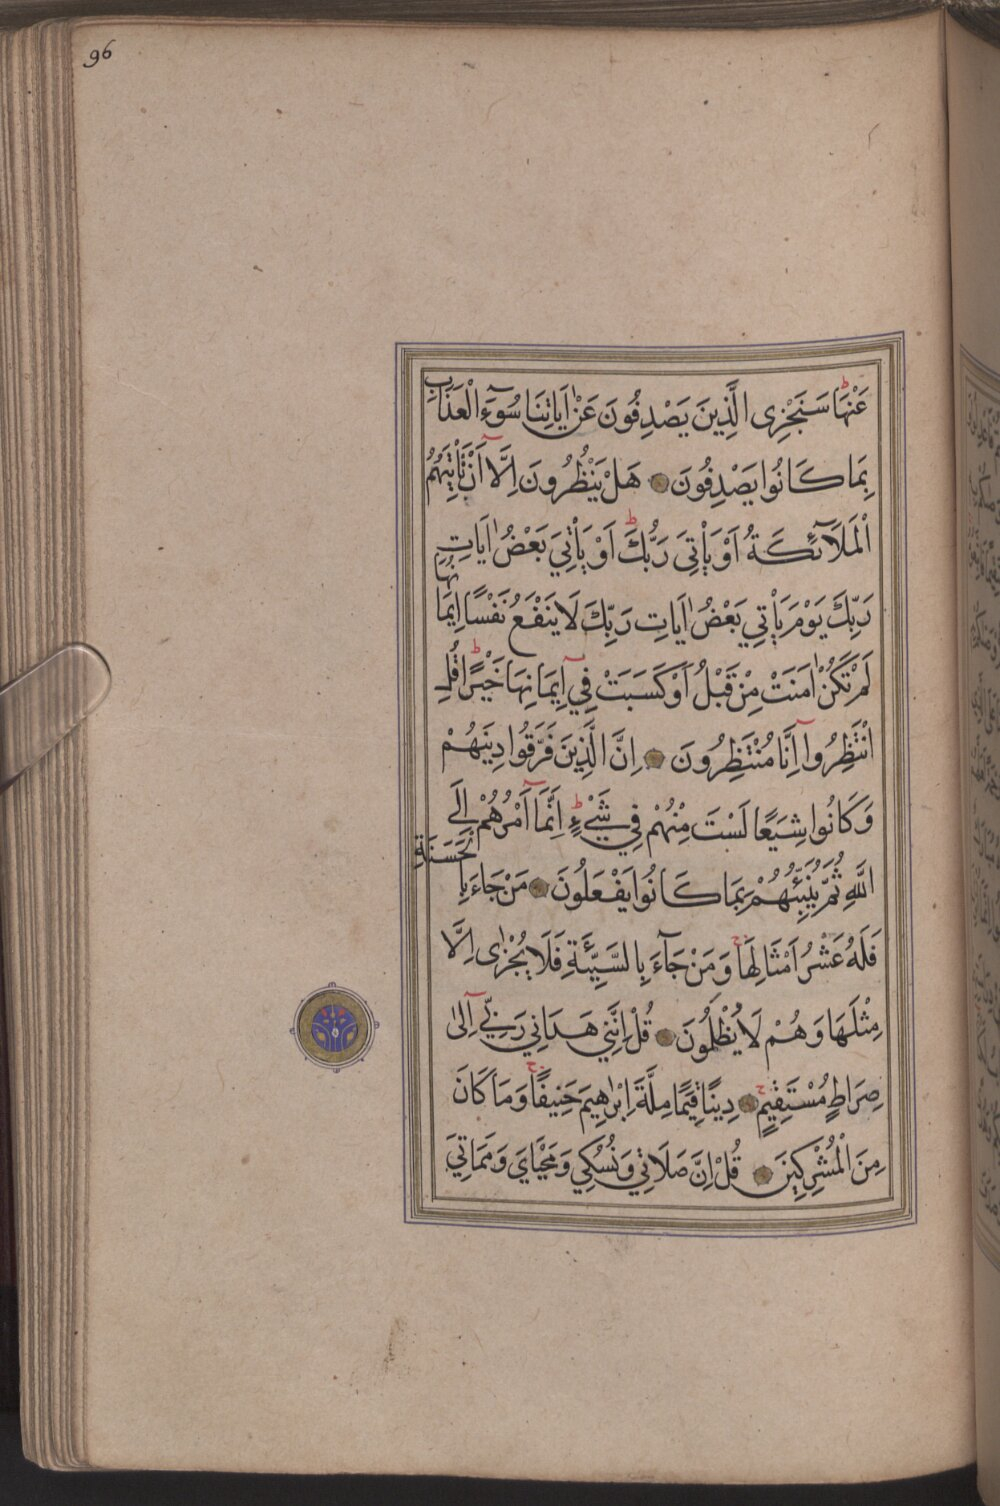 96
عَنْهَا سَنَجْزِى الَّذِينَ يَصْدِفُونَ عَنْ اٰيَاتِنَا سُوٓءَ الْعَذَابِ
بِمَا كَانُوا يَصْدِفُونَ هَلْ يَنْظُرُونَ اِلَّٓا اَنْ تَاْتِيَهُمُ
الْمَلَآئِكَةُ اَوْ يَاْتِىَ رَبُّكَ اَوْ يَاْتِيَ بَعْضُ اٰيَاتِ
رَبِّكَ يَوْمَ يَاْتِي بَعْضُ اٰيَاتِ رَبِّكَ لَا يَنْفَعُ نَفْسًا اِيمَانُهَا
لَمْ تَكُنْ اٰمَنَتْ مِنْ قَبْلُ اَوْ كَسَبَتْ فِيٓ اِيمَانِهَا خَيْرًا قُلِ
انْتَظِرُوٓا اِنَّا مُنْتَظِرُونَ اِنَّ الَّذِينَ فَرَّقُوا دِينَهُمْ
وَكَانُوا شِيَعًا لَسْتَ مِنْهُمْ فِي شَيْءٍ اِنَّمَٓا اَمْرُهُمْ اِلَى
اللّٰهِ ثُمَّ يُنَبِّئُهُمْ بِمَا كَانُوا يَفْعَلُونَ مَنْ جَاءَ بِالْحَسَنَةِ
فَلَهُ عَشْرُ اَمْثَالِهَا وَمَنْ جَآءَ بِالسَّيِّئَةِ فَلَا يُجْزٰى اِلَّا
مِثْلَهَا وَهُمْ لَا يُظْلَمُونَ قُلْ اِنَّنِي هَدَانِي رَبِّيٓ اِلٰى
صِرَاطٍ مُسْتَقِيمٍ دِينًا قِيَمًا مِلَّةَ اِبْرٰهِيمَ حَنِيفًا وَمَا كَانَ
مِنَ الْمُشْرِكِينَ قُلْ اِنَّ صَلَاتِي وَنُسُكِي وَمَحْيَايَ وَمَمَاتِيَ